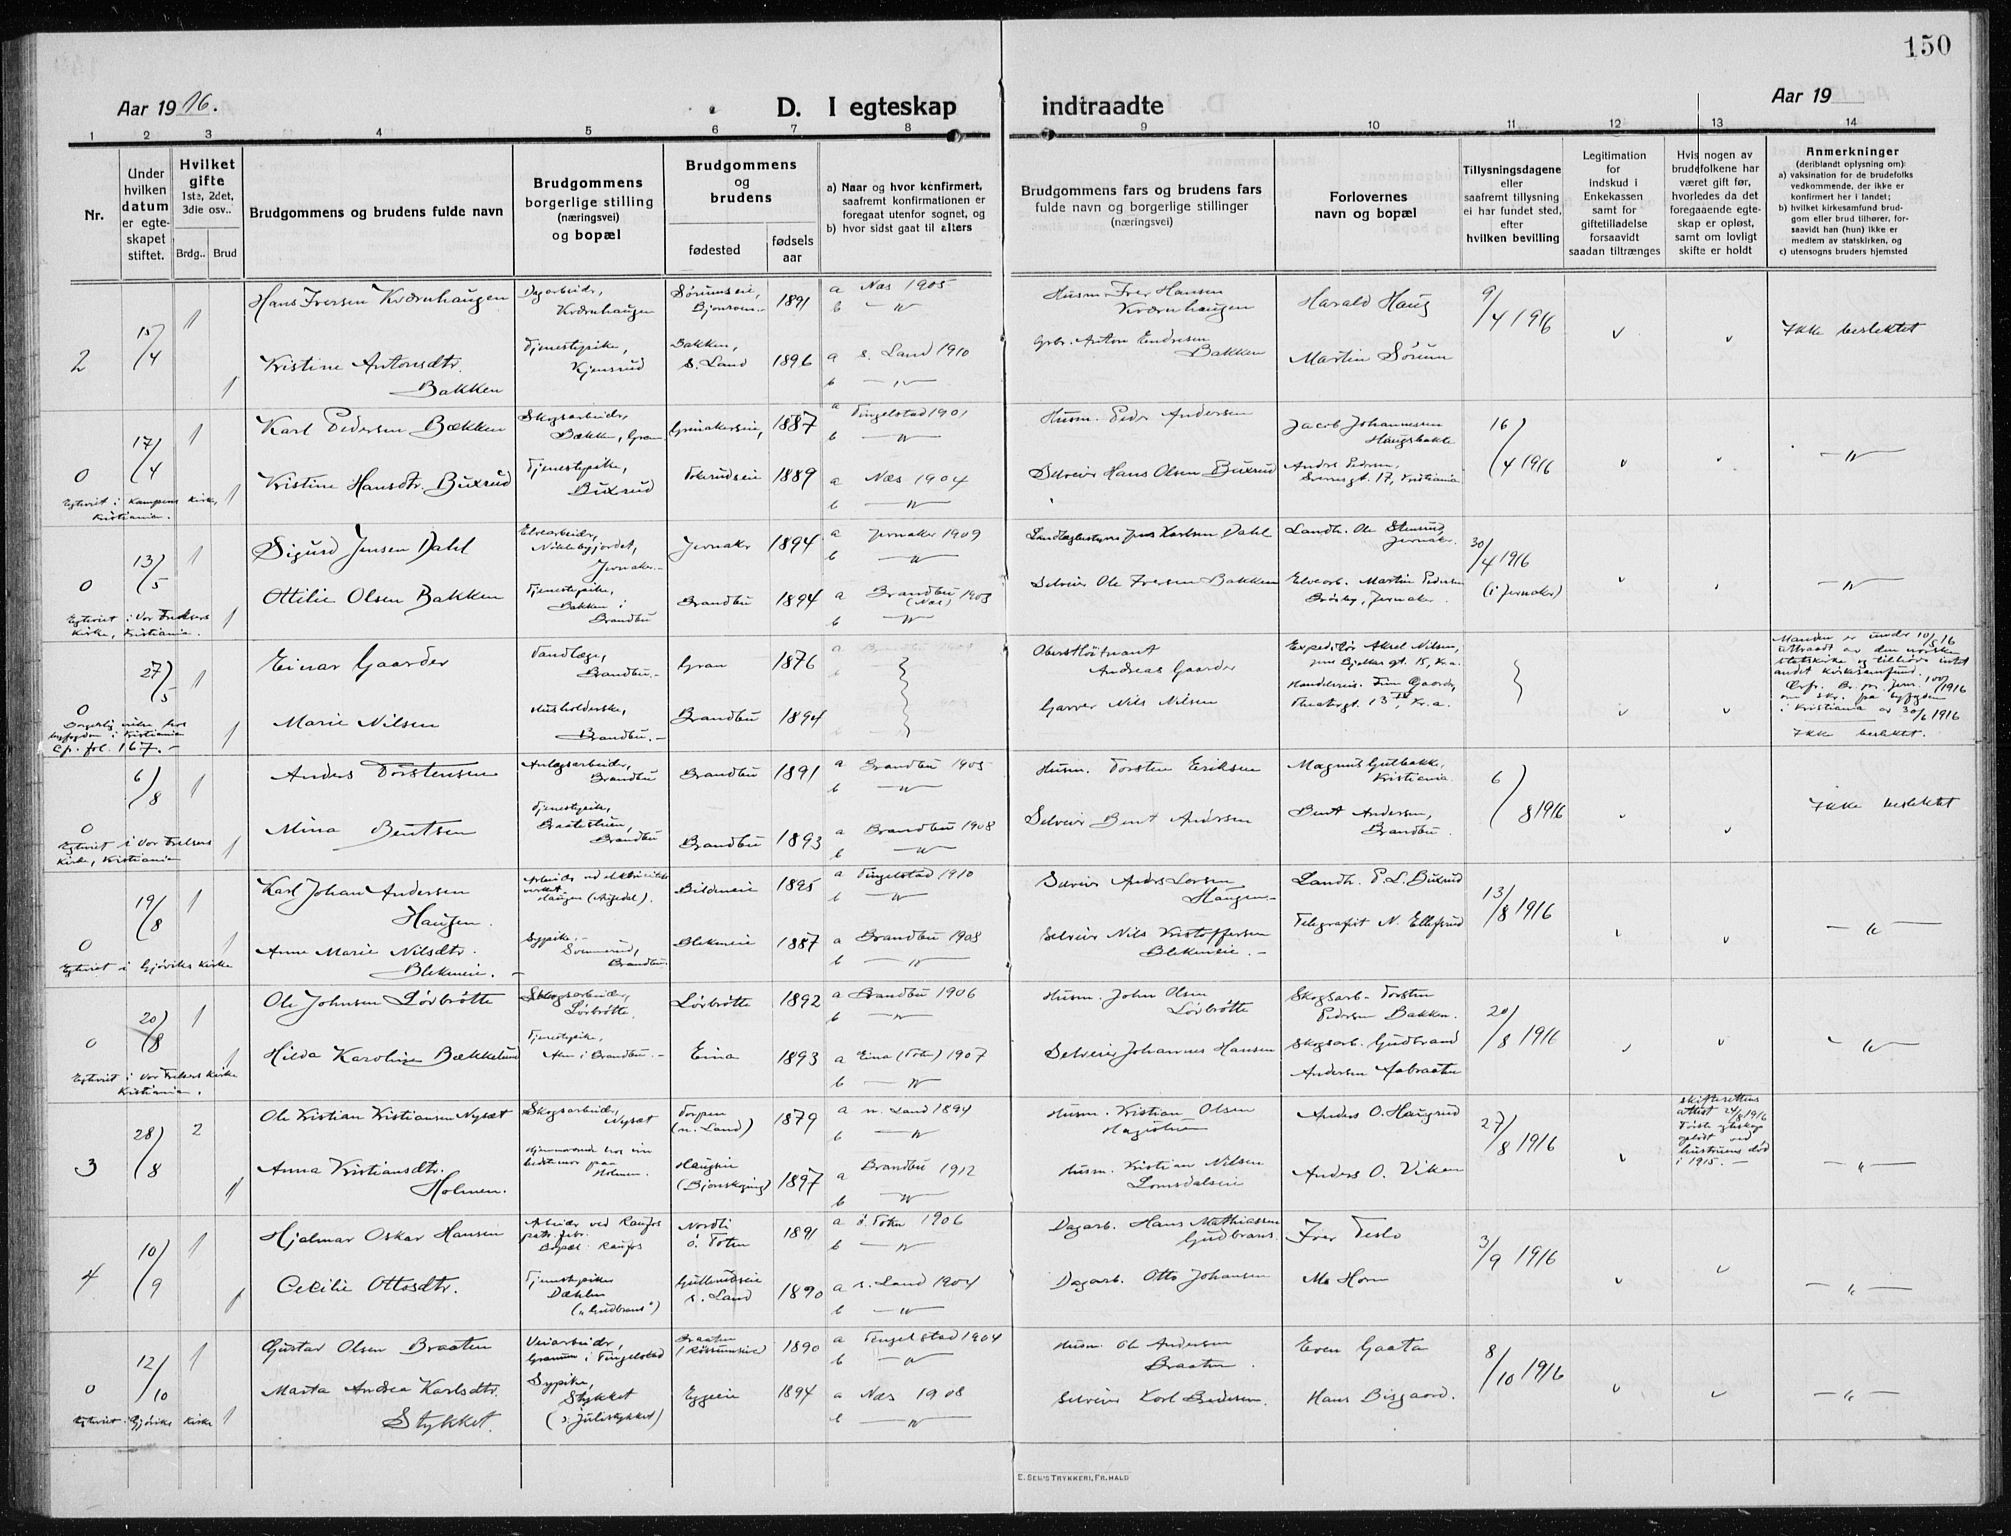 150
Aar 19 16.
D. I egteskap indtraadte
Aar 19
1 2 3 4 5 6 7 8 9 10 11 12 13 14
Nr.
Under
hvilken
datum
er egte-
skapet
stiftet.
Hvilket
gifte
1ste, 2det,
3die osv..
Brdg.. Brud
Brudgommens og brudens fulde navn
Brudgommens
borgerlige stilling
(næringsvei)
og bopæl
Brudgommens
og
brudens
fødested
fødsels
aar
a) Naar og hvor konfirmert,
saafremt konfirmationen er
foregaat utenfor sognet, og
b) hvor sidst gaat til alters
Brudgommens fars og brudens fars
fulde navn og borgerlige stillinger
(næringsvei)
Forlovernes
navn og bopæl
Tillysningsdagene
eller
saafremt tillysning
ei har fundet sted,
efter
hvilken bevilling
Legitimation
for
indskud i
Enkekassen
samt for
giftetilladelse
forsaavidt
saadan tiltrænges
Hvis nogen av
brudefolkene har
været gift før,
hvorledes da det
foregaaende egte-
skap er opløst,
samt om lovligt
skifte er holdt
Anmerkninger
(deriblandt oplysning om):
a) vaksination for de brudefolks
vedkommende, der ikke er
konfirmert her i landet;
b) hvilket kirkesamfund brud-
gom eller brud tilhører, for-
saavidt han (hun) ikke er
medlem av statskirken, og
c) utensogns bruders hjemsted
2 15/4 1 Hans Iversen Kværnhaugen Dagarbeider, Kværnhaugen 1891 a Næs 1905 b — " — Husm. Iver Hansen Kværnhaugen Harald Haug 9/4 1916 Ikke beslektet
1 Kristine Antonsdtr. Bakken Tjenestepike, Kjensrud Bakken, s. Land 1896 a s. Land 1910 b — " — Grbr. Anton Endresen Bakken Martin Sørum
0 17/4 1 Karl Pedersen Bækken Skogsarbeider, Bækken, Gran 1887 a Tingelstad 1901 b — " — Husm. Peder Andersen Jacob Johannessen 16/4 1916 — " —
1 Kristine Hansdtr. Buxrud Tjenestepike, Buxrud 1889 a Næs 1904 b — " — Selveier Hans Olsen Buxrud gt. 17, Kristiania
Egteviet i Kampens kirke, Kristiania.
0 13/5 1 Sigurd Jensen Dahl Elvearbeider, Jevnaker Jevnaker 1894 a Jevnaker 1909 b — " — Jens Karlsen Dahl Landh. Ole Stensrud, Jevnaker. 30/4 1916 (i Jevnaker) — " —
1 Ottilie Olsen Bakken Tjenestepike, Bakken i Brandbu Brandbu 1894 a Brandbu (Næs) 1903 b — " — Selveier Ole Iversen Bakken Elvearb. Martin Pedersen Brørby, Jevnaker
Egteviet i Vor Frelsers Kirke, Kristiania.
0 27/5 1 Einar Gaarder Tandlæge, Brandbu. Gran 1876 Oberstløitnant Andreas Gaarder Expeditør Aksel Nilsen, gt. 15, Kr.a.
1 Marie Nilsen Husholderske, Brandbu. Brandbu 1894 Garver Nils Nilsen Handelsreis. Gaarder, Theatergt. 13, Kr.a.
Borgerlig viet hos byfogden i Kristiania Cp. fol. 167.
Manden er under 10/5 16 uttraadt av den norske statskirke og tilhører intet andet kirkesamfund.
i Kristiania av 30/6 1916
Ikke beslektet.
0 6/8 1 Anders Torstensen Anlægsarbeider, Brandbu Brandbu 1891 a Brandbu 1905 b — " — Husm. Torsten Eriksen Magnus Gulbakke, Kristiania 6/8 1916 Ikke beslektet
1 Mina Bentsen Tjenestepike, Brandbu Brandbu 1893 a Brandbu 1908 b — " — Selveier Bent Andersen Bent Andersen, Brandbu
Egteviet i Vor Frelsers Kirke, Kristiania
0 19/8 1 Karl Johan Andersen Haugen. Arbeider ved elektricitetsverket. Haugen 1895 a Tingelstad 1910 b — " — Selveier Anders Larsen Haugen Landh. P. L. Buxrud 13/8 1916 — " —
1 Anne Marie Nilsdtr. Blekmeie. Sypike. Brandbu. Blekmeie 1887 a Brandbu 1903 b — " — Selveier Nils Kristoffersen Blekmeie. Telegrafist N. Ellefsrud
Egteviet i Gjøviks kirke
0 20/8 1 Ole Johnsen Lørbrøtte Skogsarbeider, Lørbrøtte. Lørbrøtte 1892 a Brandbu 1906 b — " — Husm. John Olsen Lørbrøtte Skogsarb. Torsten Pedersen Bakken. 20/8 1916 — " —
1 Hilda Karoline Bækkelund Tjenestepike, i Brandbu. Eina 1893 a Eina (Toten) 1907 b — " — Selveier Johannes Hansen Skogsarb. Gudbrand Andersen Aabraaten
Egteviet i Vor Frelsers Kirke Kristiania.
3 28/8 2 Ole Kristian Kristiansen Nysæt Skogsarbeider, Nysæt Torpen (n. Land) 1879 a n. Land 1894 b — " — Husm. Kristian Olsen Anders O. Haugrud 27/8 1916 skifterettens attest 24/8 1916 Første egteskap opløst ved hustruens død i 1915. — " —
1 Anna Kristiansdtr. Holmen. Hjemmeværende hos sin bedstemor paa Holmen. 1897 a Brandbu 1912 b — " — Husm. Kristian Nilsen Lomsdalseie Anders O. Viken
4 10/9 1 Hjalmar Oskar Hansen Arbeider ved Raufos patr. fabr. Bopæl: Raufos Nordli ö. Toten 1891 a ö. Toten 1906 b — " — Dagarb. Hans Mathiassen Iver Teslo 3/9 1916 — " —
1 Cecilie Ottosdtr. Tjenestepike Dæhlen s. Land 1890 a s. Land 1904 b — " — Dagarb. Otto Johansen M. Horn
0 12/10 1 Gustav Olsen Braaten Veiarbeider, Granum i Tingelstad Braaten 1890 a Tingelstad 1904 b — " — Husm. Ole Andersen Braaten Even Gaata 8/10 1916 — " —
1 Marta Andrea Karlsdtr. Stykket. Sypike, Stykket Eggeeie 1894 a Næs 1908 b — " — Selveier Karl Pedersen. Hans Bisgaard.
Egteviet i Gjøviks kirke
E. SEM'S TRYKKERI, FR. HALD